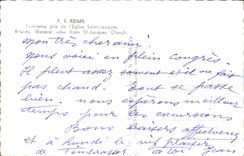 P. V. REIMS
Panorama pris de l'Eglise Saint-Jacques
Rheims, General view from St-Jacques Church
1
Mon très cher ami
Nous voici en plein congrès
Il pleut assez souvent et il ne fait
pas chaud. Tout se passe
bien. nous espérons meilleur
temps pour les excursions
Bons baisers affectueux
et à lundi le plaisir
à toi Jean